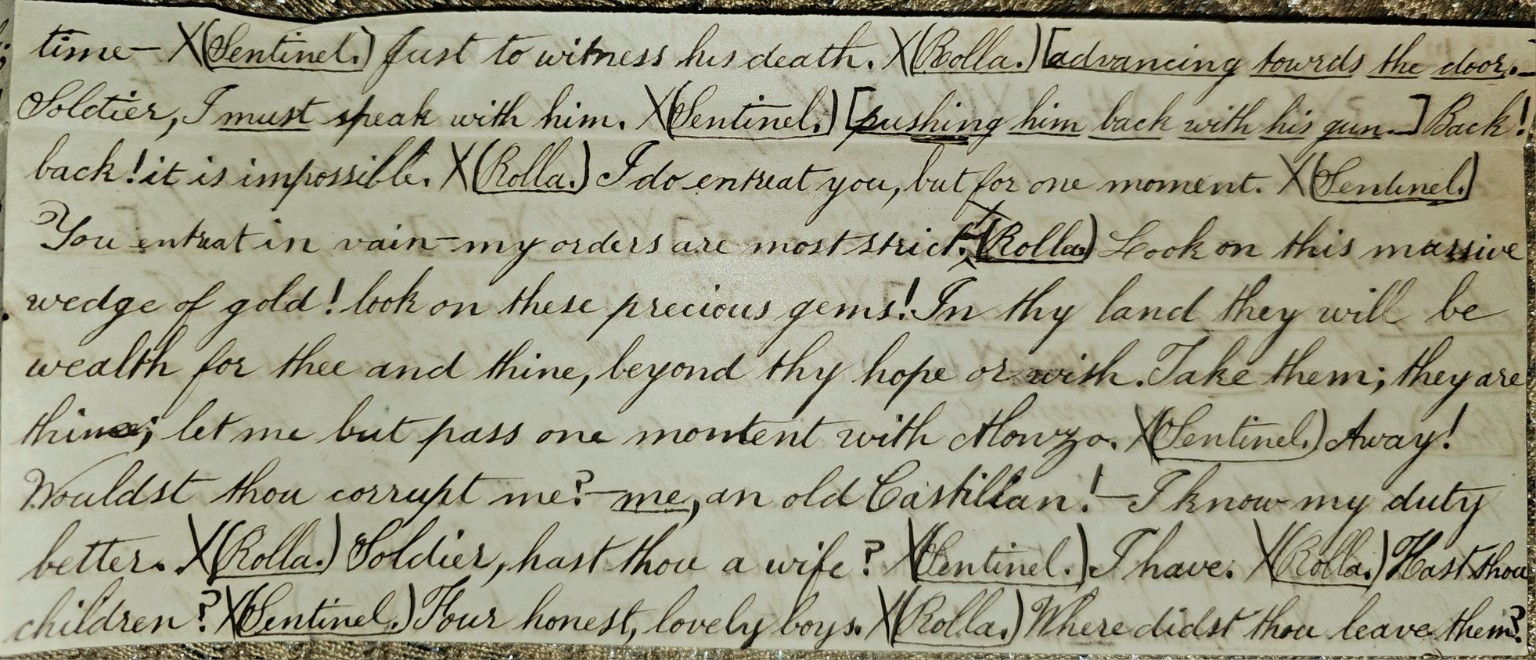 time— X(Sentinel.) Just to witness his death. X(Rolla.) [advancing towards the door.—
Soldier, I must speak with him. X(Sentinel.) [pushing him back with his gun.—] Back!
back! it is impossible. X(Rolla.) I do entreat you, but for one moment. X(Sentinel.)
You entreat in vain—my orders are most strict. X(Rolla.) Look on this massive
wedge of gold! look on these precious gems! In thy land they will be
wealth for thee and thine, beyond thy hope or wish. Take them; they are
thine; let me but pass one moment with Alonzo. X(Sentinel.) Away!
Wouldst thou corrupt me?—me, an old Castilian!—I know my duty
better. X(Rolla.) Soldier, hast thou a wife? X(Sentinel.) I have. X(Rolla.) Hast thou
children? X(Sentinel.) Four honest, lovely boys. X(Rolla.) Where didst thou leave them?